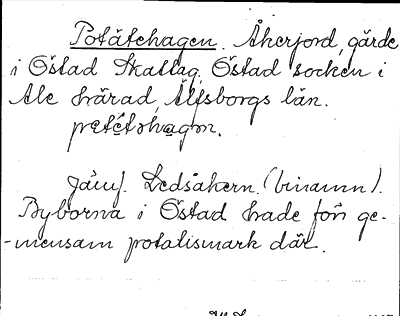 Potätehagen. Åkerjord, gärde
i Östad Skattag, Östad socken i
Ale härad, Älfsborgs län.
Jämf. Ledsåkern. (binamn).
Byborna i Östad hade förr ge-
-mensam potatismark där.